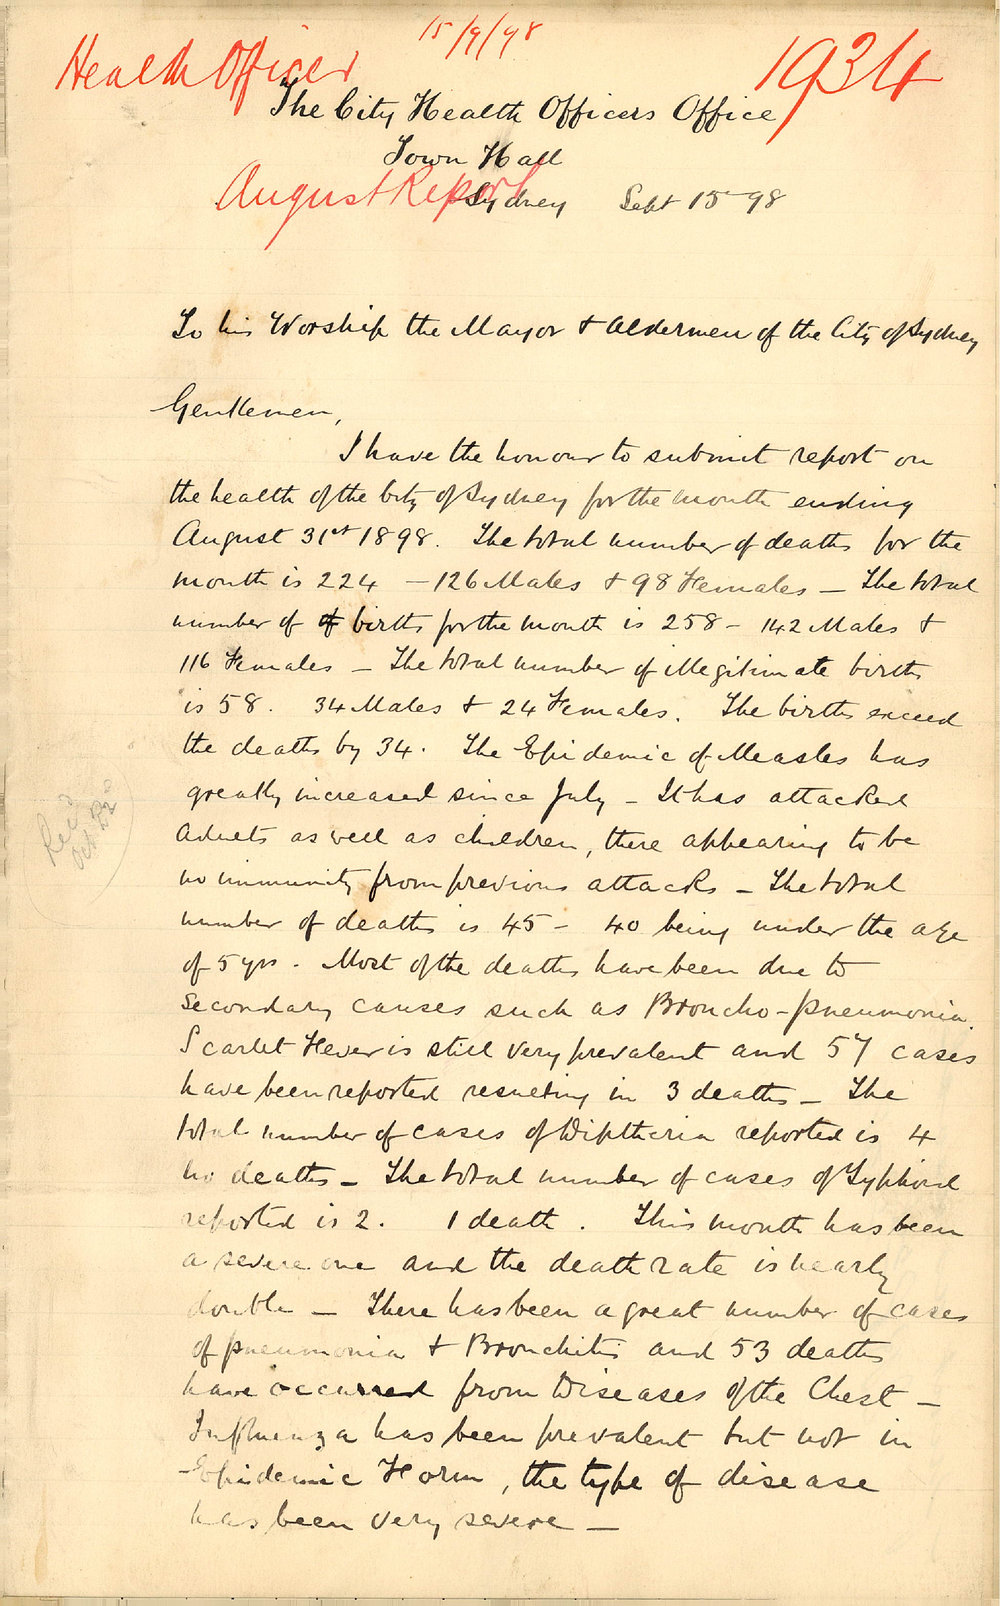 15/9/98
Health Officer
1934
The City Health Officers Office
Town Hall
August Report
Sydney Sept 15-98
To his Worship the Mayor & Aldermen of the City of Sydney
Gentlemen,
I have the honour to submit report on
the health of the City of Sydney for the month ending
August 31st 1898. The total number of deaths for the
month is 224 - 126 Males & 98 Females - The total
number of of births for the month is 258 - 142 Males &
116 Females - The total number of illegitimate births
is 58. 34 Males & 24 Females. The births exceed
the deaths by 34. The Epidemic of Measles has
greatly increased since July - It has attacked
Adults as well as children, there appearing to be
no immunity from previous attacks - The total
number of deaths is 45 - 40 being under the age
of 5 yrs. Most of the deaths have been due to
secondary causes such as Broncho-pneumonia.
Scarlet Fever is still very prevalent and 57 cases
have been reported resulting in 3 deaths - The
total number of cases of Diptheria reported is 4
no deaths - The total number of cases of Typhoid
reported is 2. 1 death. This month has been
a severe one and the death rate is nearly
double - There has been a great number of cases
of pneumonia & Bronchitis and 53 deaths
have occurred from Diseases of the Chest -
Influenza has been prevalent but not in
Epidemic Form, the type of disease
has been very severe -